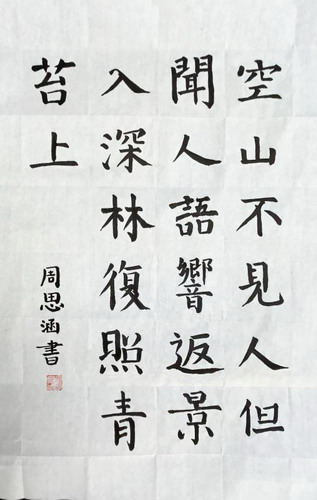 空山不見人但
聞人語響返景
入深林復照青
苔上
周思涵書